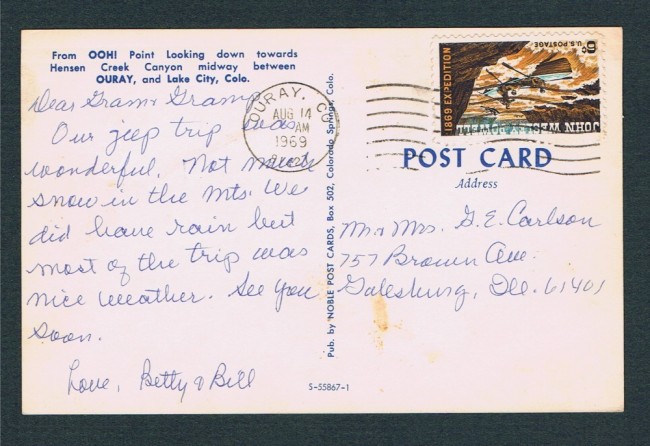 From OOH! Point Looking down towards
Hensen Creek Canyon midway between
OURAY, and Lake City, Colo.
Dear Gram & Gramp
Our jeep trip was
wonderful. Not much
snow in the Mts. We
did have rain but
most of the trip was
nice weather. See you
soon.
Love, Betty & Bill
OURAY, CO
AUG 14
AM
1969
Pub. by NOBLE POST CARDS, Box 502, Colorado Springs, Colo.
S-55867-1
6c U.S. POSTAGE
JOHN WESLEY POWELL
1869 EXPEDITION
POST CARD
Address
Mr & Mrs. G. E. Carlson
757 Brown Ave.
Galesburg, Ill. 61401